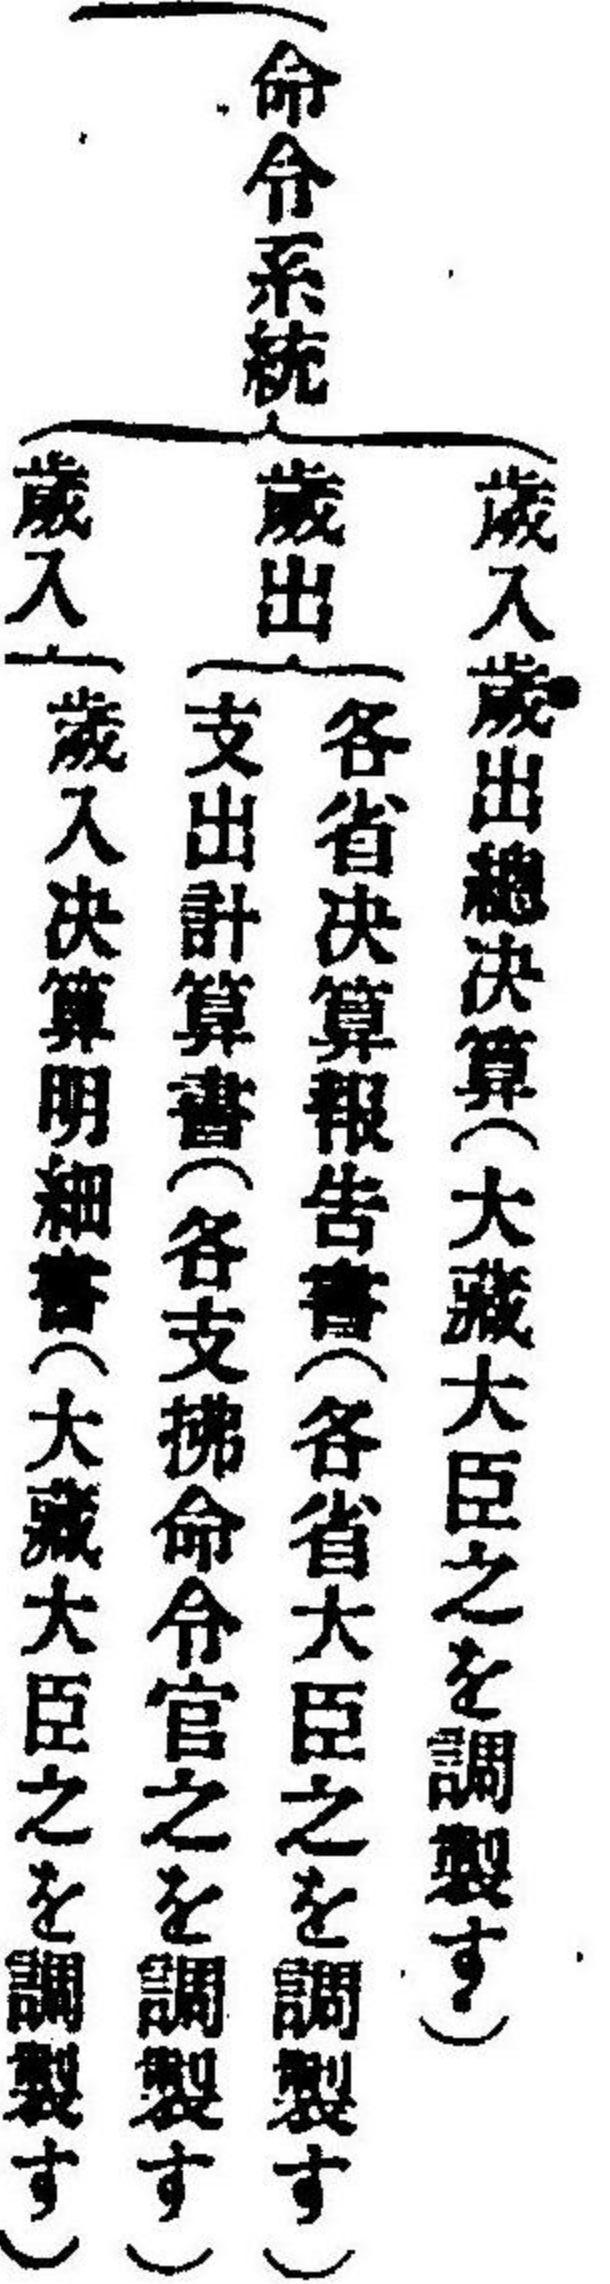 命令系統
歲入歲出總决算(大藏大臣之を調製す)
歲出
各省决算報告書(各省大臣之を調製す)
支出計算書(各支拂命令官之を調製す)
歲入
歲入决算明細書(大藏大臣之を調製す)